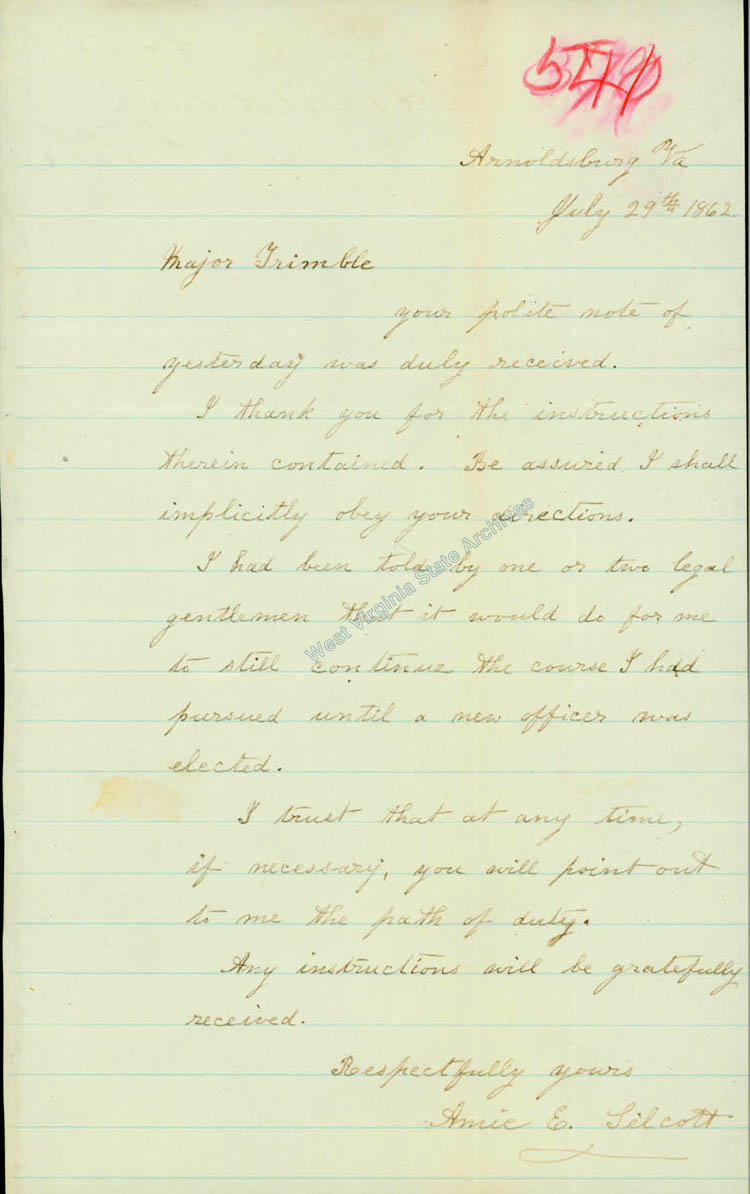 Arnoldsburg Va
July 29th 1862.
Major Trimble
your polite note of
yesterday was duly received.
I thank you for the instructions
therein contained. Be assured I shall
implicitly obey your directions.
I had been told by one or two legal
gentlemen that it would do for me
to still continue the course I had
pursued until a new officer was
elected.
I trust that at any time,
if necessary, you will point out
to me the path of duty.
Any instructions will be gratefully
received.
Respectfully yours
Amie E. Silcott
West Virginia State Archives